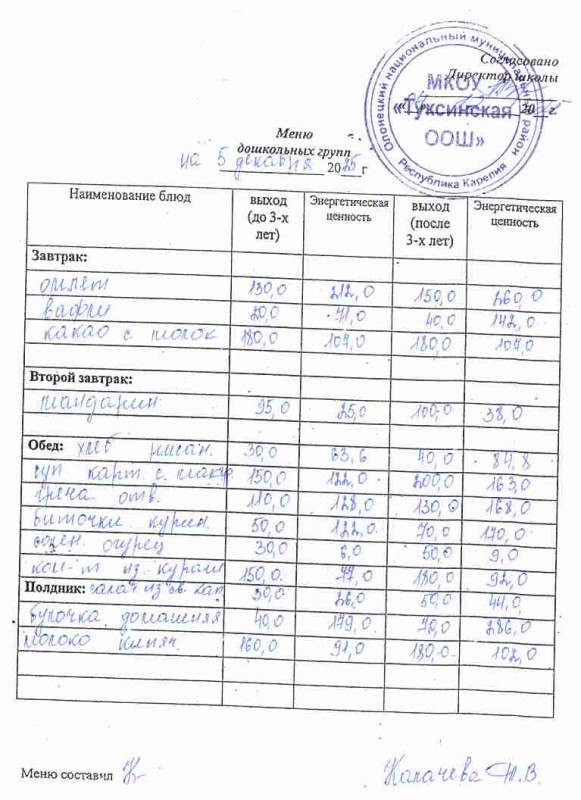 Согласовано
Директор школы
20 г.
Олонецкий национальный муниципальный район
МКОУ
«Туксинская
ООШ»
Республика Карелия
Меню
дошкольных групп
на 5 декабря 2025 г
Наименование блюд | выход (до 3-х лет) | Энергетическая ценность | выход (после 3-х лет) | Энергетическая ценность
Завтрак:
омлет 130,0 212,0 150,0 260,0
вафли 20,0 71,0 40,0 142,0
какао с молок 180,0 107,0 180,0 107,0
Второй завтрак:
мандарин 95,0 25,0 100,0 38,0
Обед: хлеб ржан. 30,0 63,6 40,0 84,8
суп карт. с мак. 150,0 122,0 200,0 163,0
греча отв. 110,0 128,0 130,0 168,0
биточки курин. 50,0 122,0 70,0 170,0
солен. огурец 30,0 6,0 50,0 9,0
ком-т из кураги 150,0 77,0 180,0 92,0
Полдник: салат из св. кап 30,0 26,0 50,0 44,0
булочка домашняя 40,0 179,0 70,0 286,0
молоко кипяч. 160,0 91,0 180,0 102,0
Меню составил Калачева Н.В.